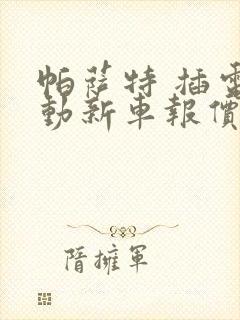 帕萨特 插電
動新車報價
隋擁軍